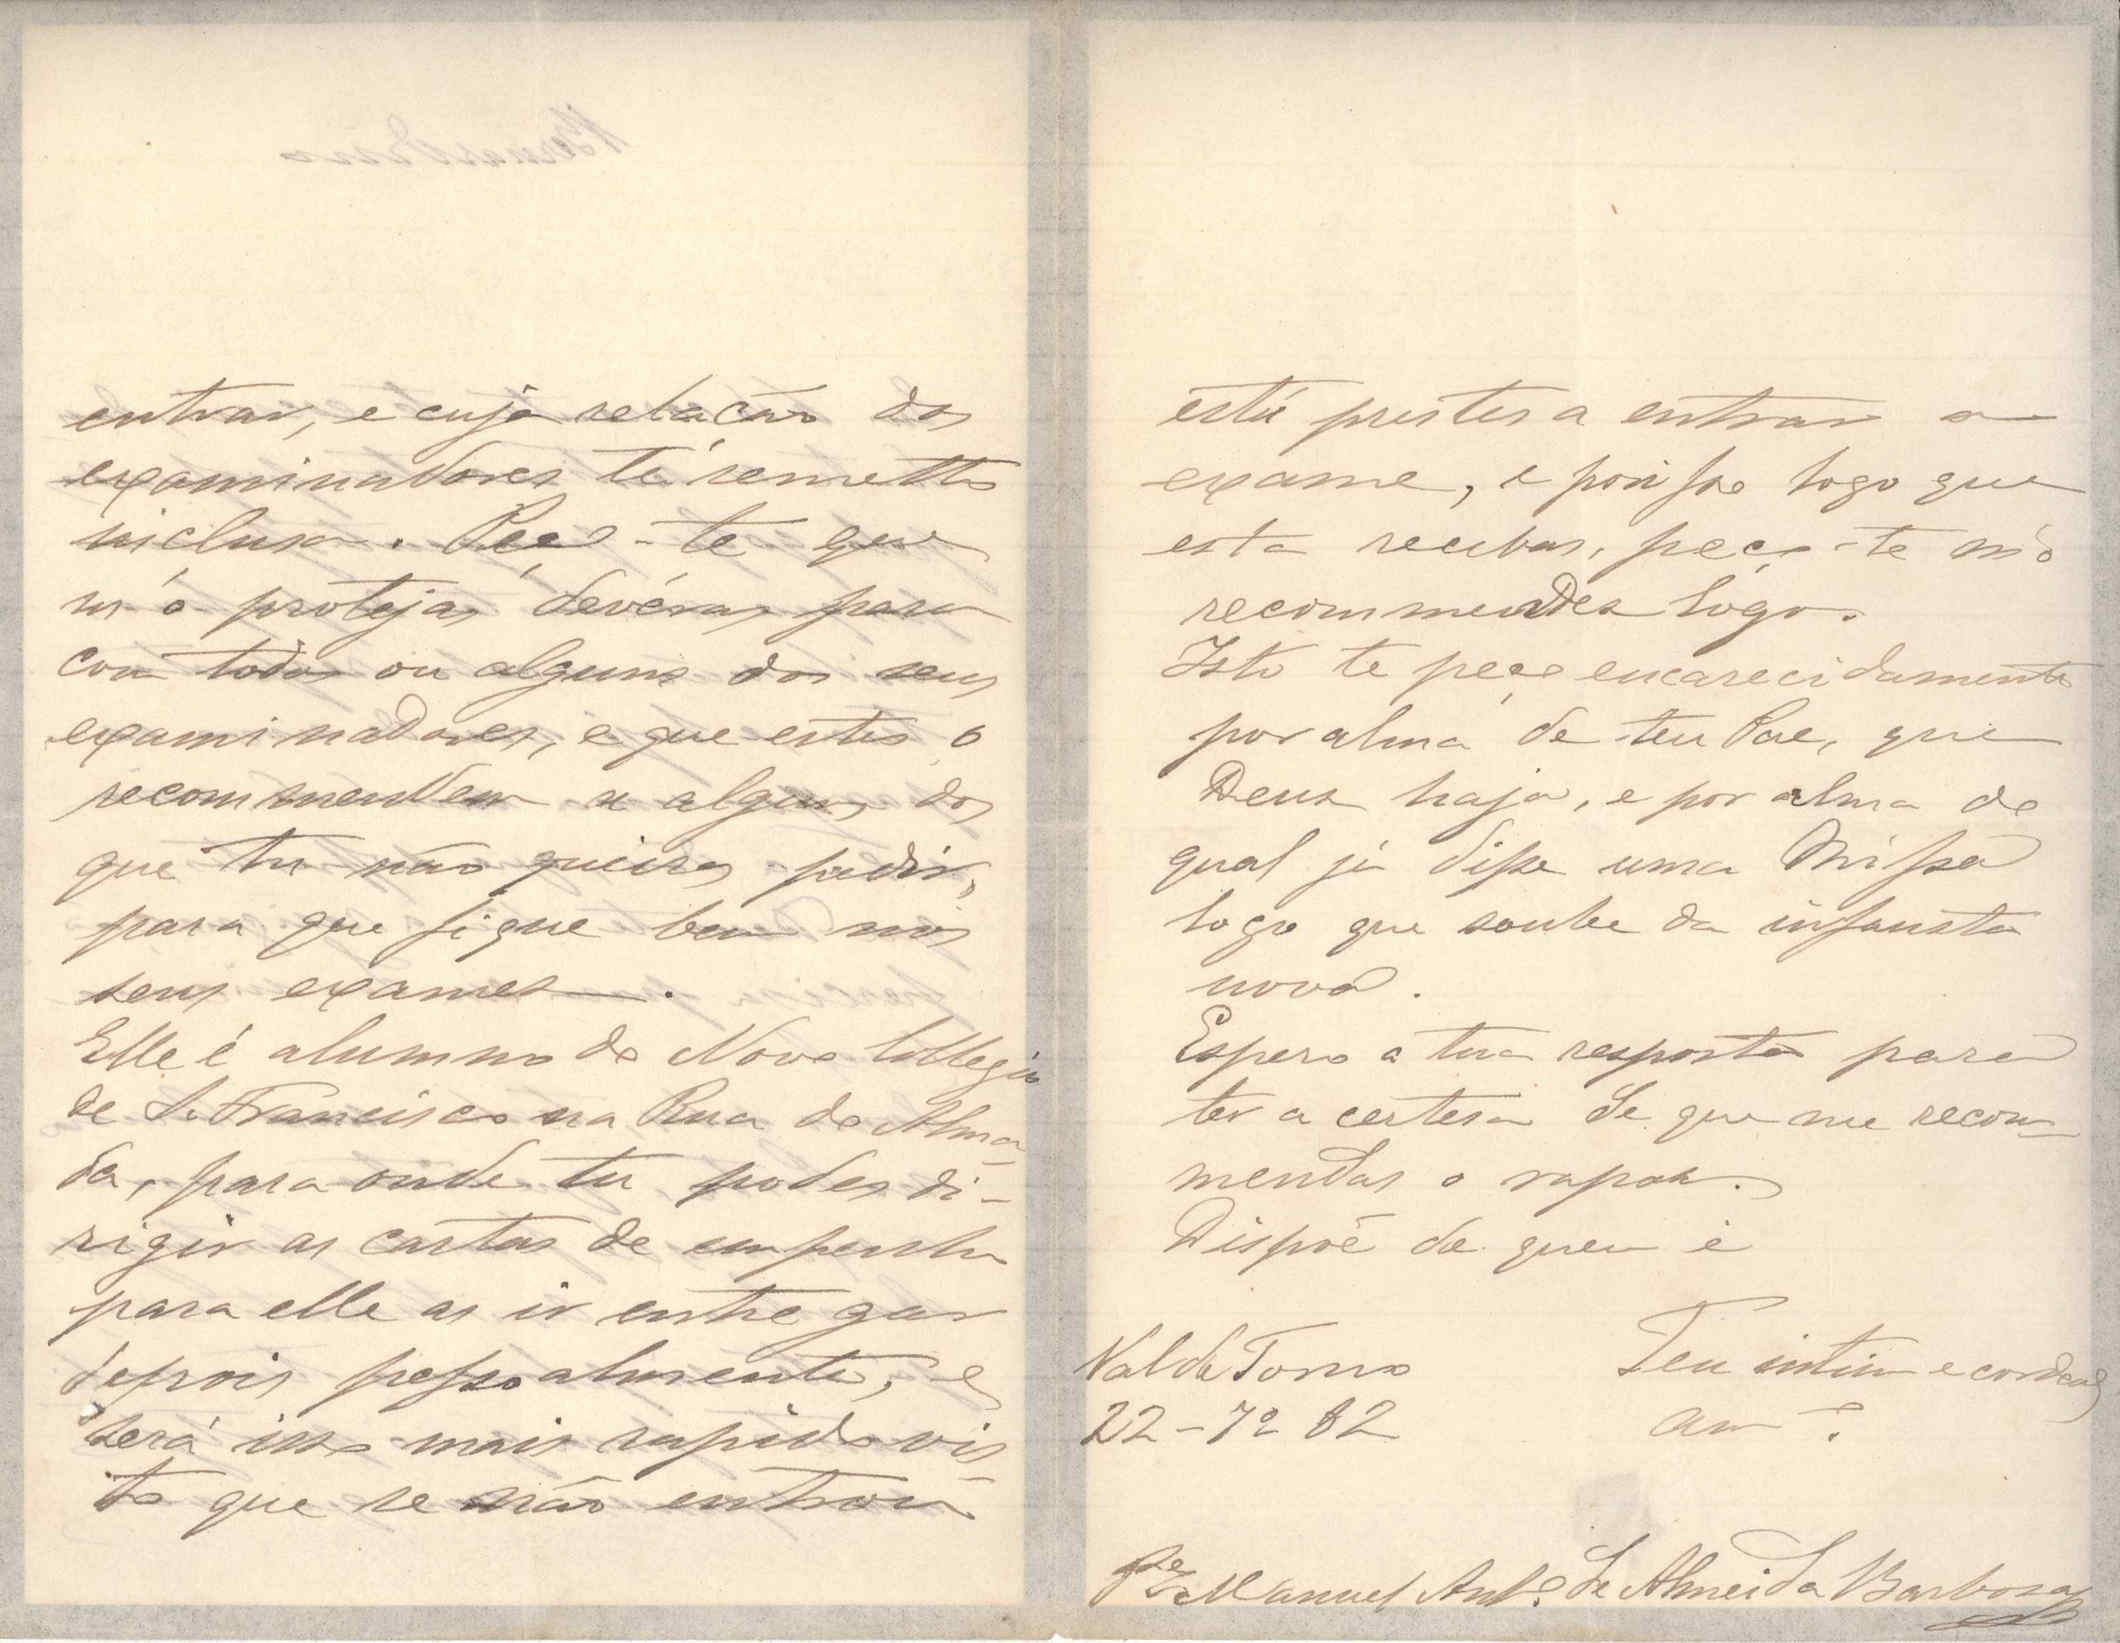 entrar, e cuja relação dos
examinadores te remetto
inclusa. Peço-te que
m'o protejas devéras para
com todos ou alguns dos seus
examinadores, e que estes o
recommendem a alguns dos
que tu não queiras pedir,
para que fique bem nos
seus exames.
Elle é alumno do Novo Collegio
de S. Francisco na Rua do Alma
da, para onde tu podes di-
rigir as cartas de empenho
para elle as ir entregar
depois pessoalmente, e
será isso mais rapido vis-
to que se não entrou
está prestes a entrar a
exame, e por isso logo que
esta recebas, peço-te m'o
recommendes lógo.
Isto te peço encarecidamente
por alma de teu Pae, que
Deus haja, e por alma do
qual já disse uma Missa
logo que soube da infausta
nova.
Espero a tua resposta para
ter a certesa de que me recom-
mendas o rapaz.
Dispõe de quem é
Teu intimo e cordeal
amº.
Val da Torno
22-7º 82
Pe. Manuel Antº. de Almeida Barbosa